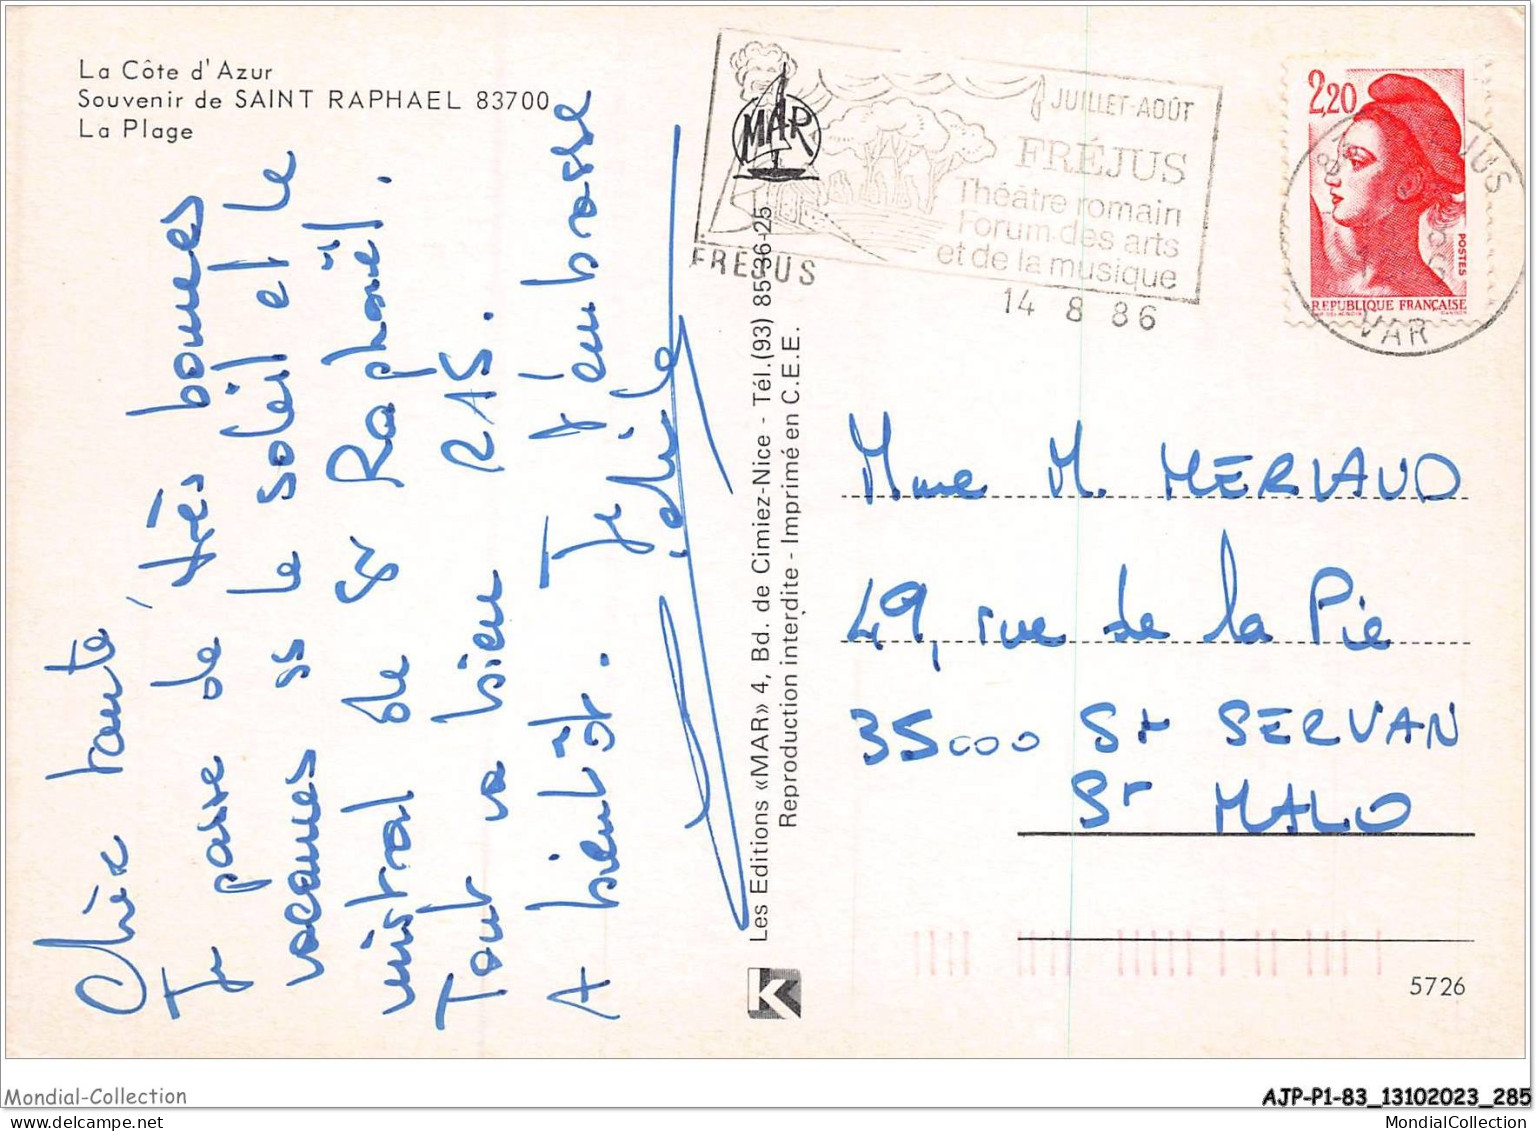 La Côte d'Azur
Souvenir de SAINT RAPHAEL 83700
La Plage
Chère tante
Je passe de très bonnes
vacances ss le soleil et le
mistral de St Raphaël.
Tout va bien RAS.
A bientôt. Je t'embrasse
MAR
JUILLET-AOÛT
FRÉJUS
Théâtre romain
Forum des arts
et de la musique
FREJUS
14 8 86
2,20
POSTES
REPUBLIQUE FRANÇAISE
VAR
Les Editions «MAR» 4, Bd. de Cimiez-Nice - Tél. (93) 85-36-25
Reproduction interdite - Imprimé en C.E.E.
K
Mme M. MERIAUD
49, rue de la Pie
35000 St SERVAN
St MALO
5726
Mondial-Collection
AJP-P1-83_13102023_285
MondialCollection